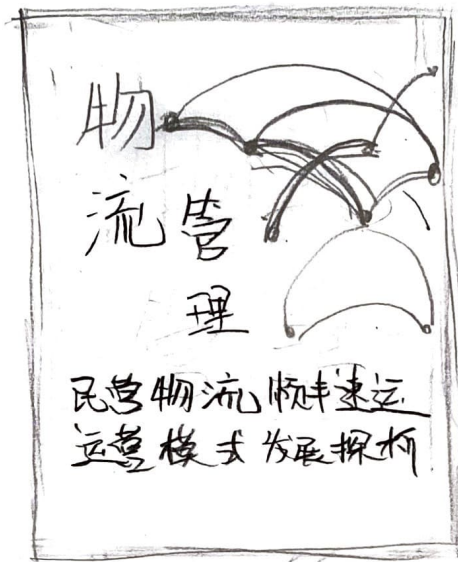 物
流管
理
民营物流顺丰速运
运营模式发展探析